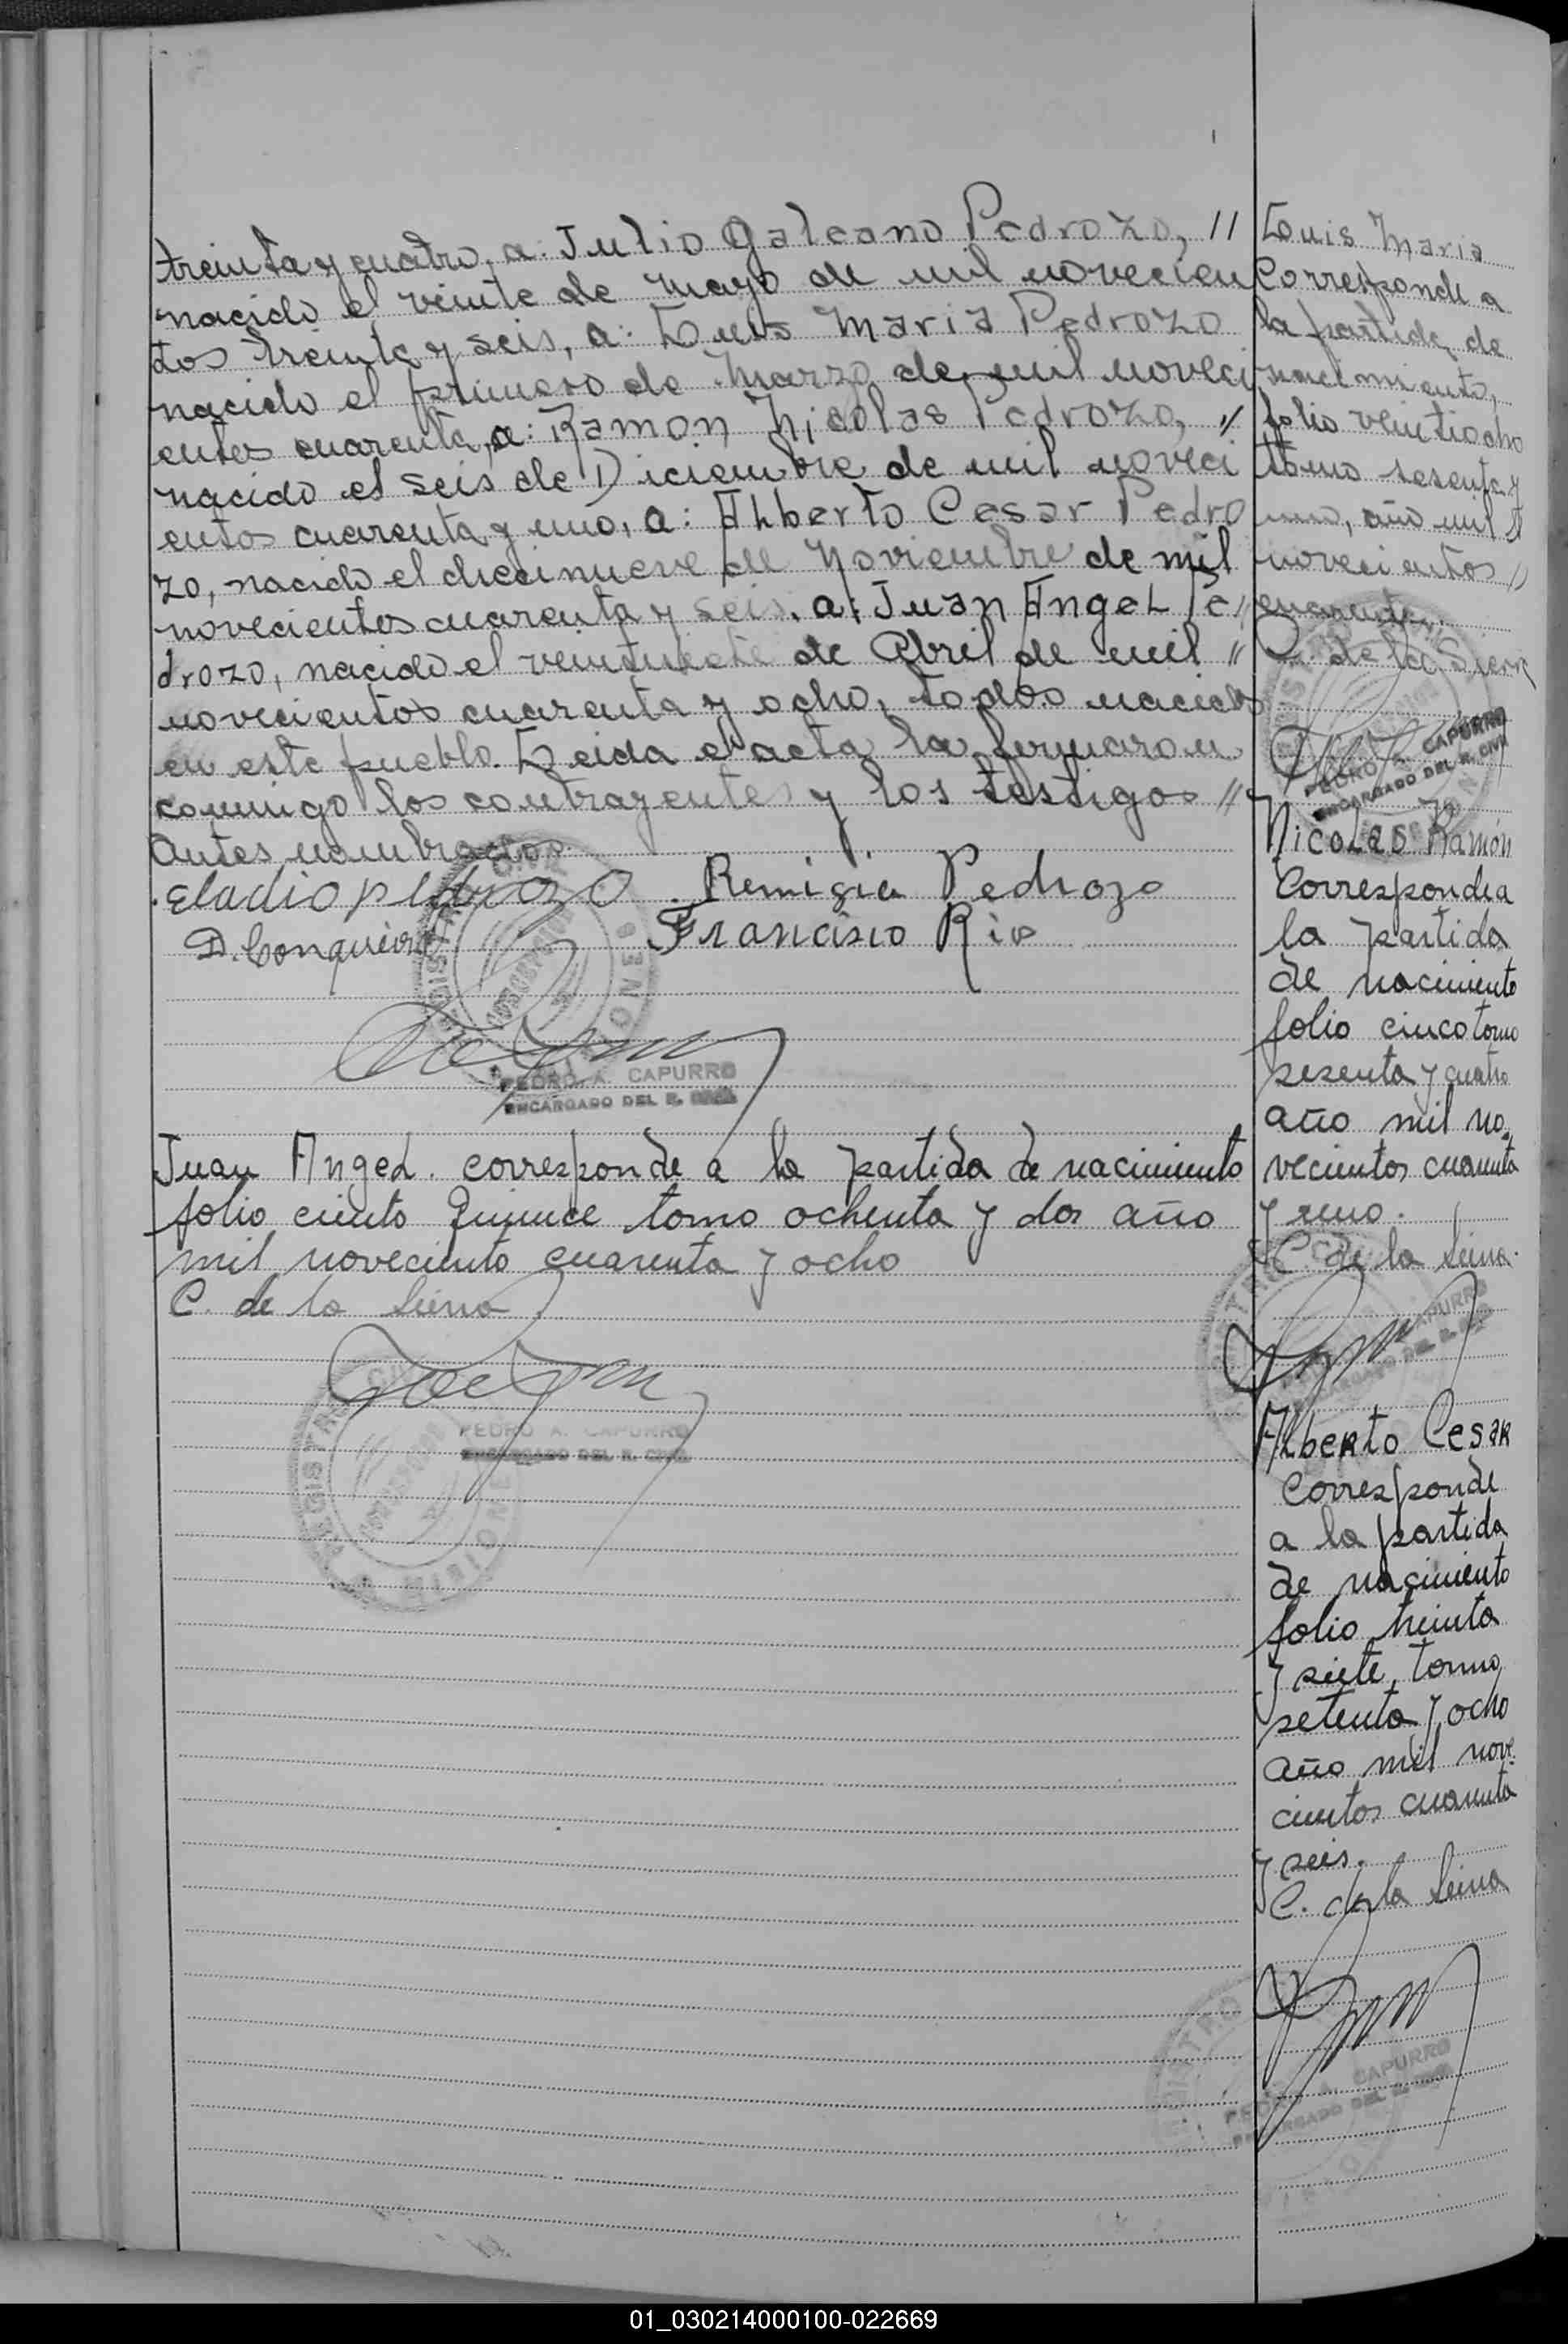 treinta y cuatro, a: Julio Galeano Pedrozo, //
nacido el veinte de mayo de mil novecien
tos treinta y seis, a: Luis Maria Pedrozo
nacido el primero de Marzo de mil noveci
entos cuarenta, a: Ramon Nicolas Pedrozo, //
nacido el seis de Diciembre de mil noveci
entos cuarenta y uno, a: Alberto Cesar Pedro
zo, nacido el diecinueve de Noviembre de mil
novecientos cuarenta y seis, a: Juan Angel Pe//
drozo, nacido el de Abril de mil //
novecientos cuarenta y ocho, todos nacidos
en este pueblo. Leida el acta la firmaron
conmigo los contrayentes y los testigos //
antes nombrados.
Eladio pedrozo Remigia Pedrozo
Francisco Rio
PEDRO A. CAPURRO
ENCARGADO DEL R. CIVIL
Juan Angel. corresponde a la partida de nacimiento
folio ciento Quince tomo ochenta y dos año
mil noveciento cuarenta y ocho
C. de la Sierra
PEDRO A. CAPURRO
ENCARGADO DEL R. CIVIL
Luis Maria
Corresponde a
la partida de
nacimiento,
folio veintiocho
tomo sesenta y
uno, año mil //
novecientos //
cuarenta.
C. de la Sierra
PEDRO A. CAPURRO
ENCARGADO DEL R. CIVIL
Nicolas Ramón
Corresponde a
la partida
de nacimiento
folio cinco tomo
sesenta y cuatro
año mil no,
vecientos cuarenta
y uno.
C. de la Sierra.
CAPURRO
ENCARGADO DEL R. CIVIL
Alberto Cesar
Corresponde
a la partida
de nacimiento
folio treinta
y siete, tomo
setenta y ocho
año mil nove
cientos cuarenta
y seis.
C. de la Sierra
PEDRO A. CAPURRO
ENCARGADO DEL R. CIVIL
01_030214000100-022669